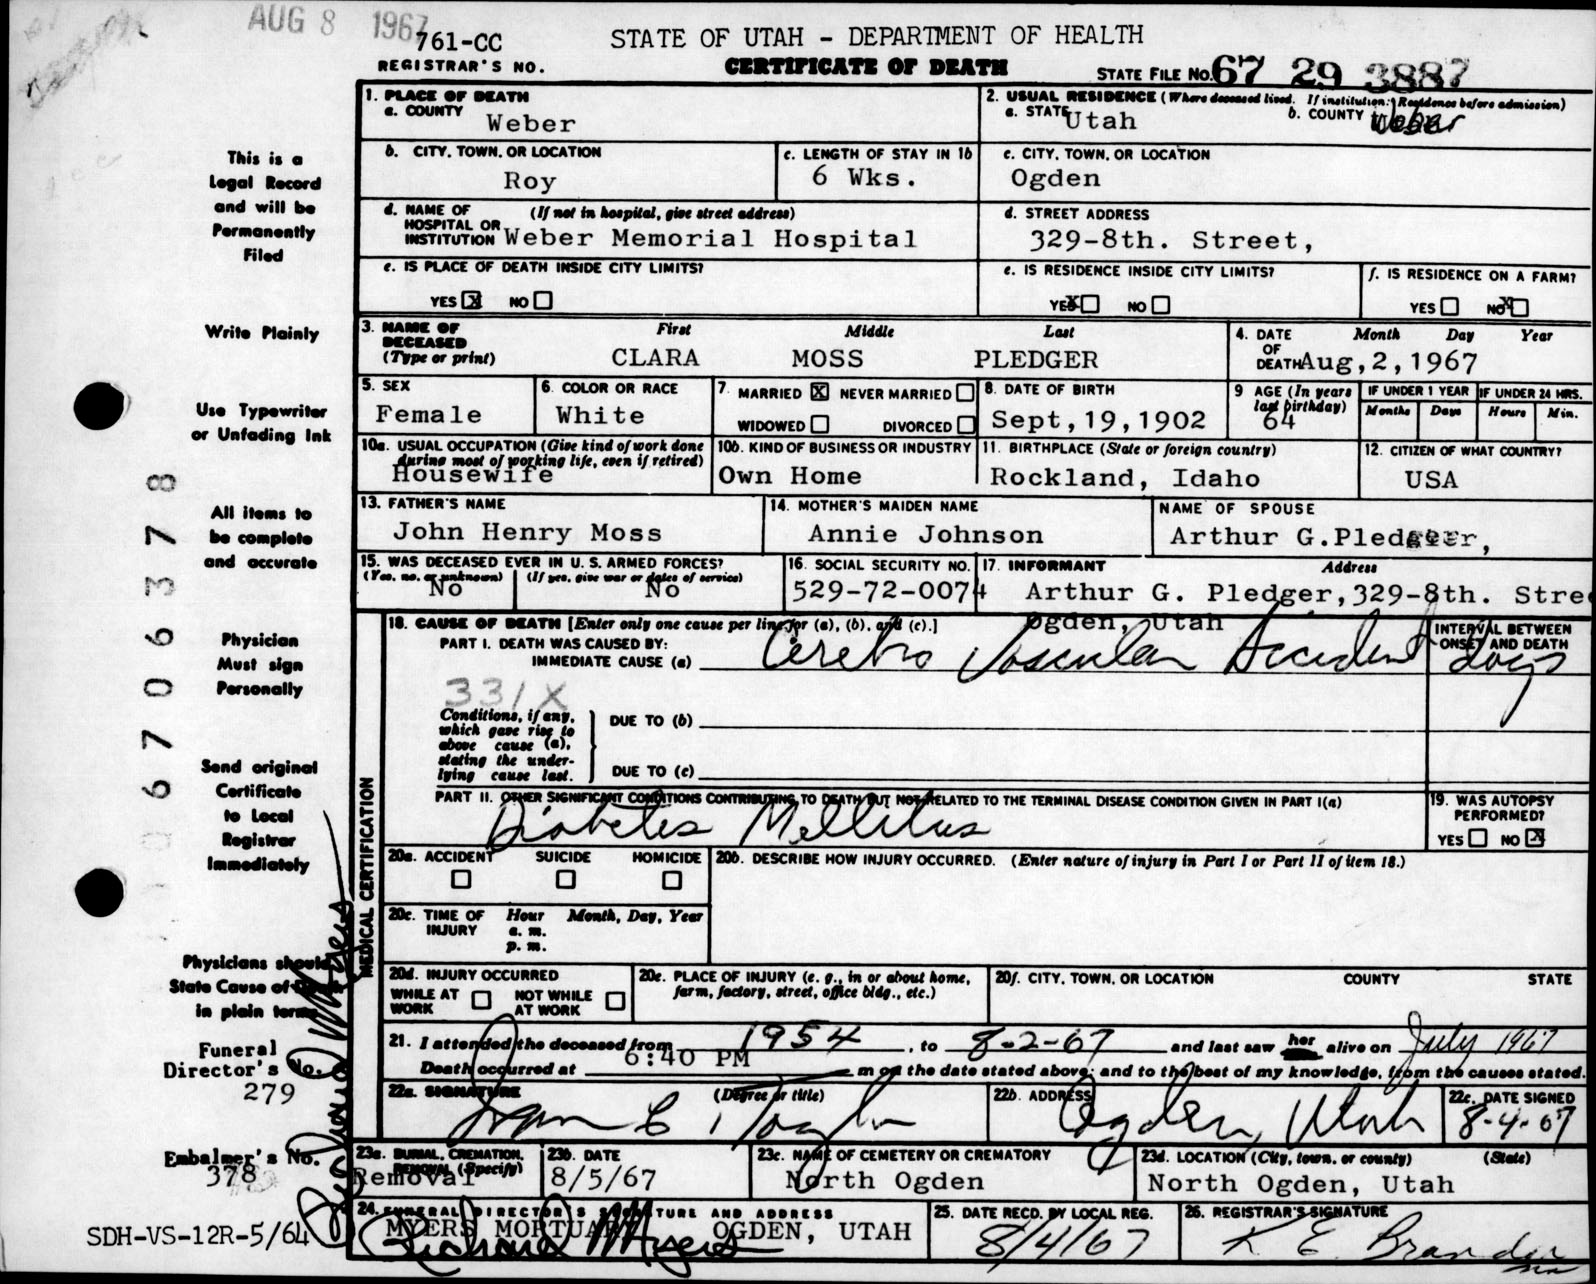 AUG 8 1967
761-CC
REGISTRAR'S NO.
STATE OF UTAH - DEPARTMENT OF HEALTH
CERTIFICATE OF DEATH
STATE FILE NO. 67 29 3887
1. PLACE OF DEATH
a. COUNTY
Weber
2. USUAL RESIDENCE (Where deceased lived. If institution: Residence before admission)
a. STATE Utah
b. COUNTY Weber
b. CITY, TOWN, OR LOCATION
Roy
c. LENGTH OF STAY IN 1b
6 Wks.
c. CITY, TOWN, OR LOCATION
Ogden
d. NAME OF HOSPITAL OR INSTITUTION
(If not in hospital, give street address)
Weber Memorial Hospital
d. STREET ADDRESS
329-8th. Street,
e. IS PLACE OF DEATH INSIDE CITY LIMITS?
YES X NO
e. IS RESIDENCE INSIDE CITY LIMITS?
YES X NO
f. IS RESIDENCE ON A FARM?
YES NO X
3. NAME OF DECEASED
(Type or print)
First Middle Last
CLARA MOSS PLEDGER
4. DATE OF DEATH
Month Day Year
Aug,2,1967
5. SEX
Female
6. COLOR OR RACE
White
7. MARRIED X NEVER MARRIED
WIDOWED DIVORCED
8. DATE OF BIRTH
Sept,19,1902
9 AGE (In years last birthday)
64
IF UNDER 1 YEAR
Months Days
IF UNDER 24 HRS.
Hours Min.
10a. USUAL OCCUPATION (Give kind of work done during most of working life, even if retired)
Housewife
10b. KIND OF BUSINESS OR INDUSTRY
Own Home
11. BIRTHPLACE (State or foreign country)
Rockland, Idaho
12. CITIZEN OF WHAT COUNTRY?
USA
13. FATHER'S NAME
John Henry Moss
14. MOTHER'S MAIDEN NAME
Annie Johnson
NAME OF SPOUSE
Arthur G.Pledger,
15. WAS DECEASED EVER IN U. S. ARMED FORCES?
(Yes, no, or unknown) (If yes, give war or dates of service)
No No
16. SOCIAL SECURITY NO.
529-72-0074
17. INFORMANT Address
Arthur G. Pledger,329-8th. Stre
Ogden, Utah
MEDICAL CERTIFICATION
18. CAUSE OF DEATH [Enter only one cause per line for (a), (b), and (c).]
PART I. DEATH WAS CAUSED BY:
IMMEDIATE CAUSE (a) Cerebro Vascular Accident
INTERVAL BETWEEN ONSET AND DEATH
days
331X
Conditions, if any, which gave rise to above cause (a), stating the underlying cause last.
DUE TO (b)
DUE TO (c)
PART II. OTHER SIGNIFICANT CONDITIONS CONTRIBUTING TO DEATH BUT NOT RELATED TO THE TERMINAL DISEASE CONDITION GIVEN IN PART I(a)
Diabetes Mellitus
19. WAS AUTOPSY PERFORMED?
YES NO X
20a. ACCIDENT SUICIDE HOMICIDE
20b. DESCRIBE HOW INJURY OCCURRED. (Enter nature of injury in Part I or Part II of item 18.)
20c. TIME OF INJURY
Hour Month, Day, Year
a. m.
p. m.
20d. INJURY OCCURRED
WHILE AT WORK NOT WHILE AT WORK
20e. PLACE OF INJURY (e. g., in or about home, farm, factory, street, office bldg., etc.)
20f. CITY, TOWN, OR LOCATION COUNTY STATE
21. I attended the deceased from 1954, to 8-2-67 and last saw her alive on July 1967
Death occurred at 6:40 PM m on the date stated above; and to the best of my knowledge, from the causes stated.
22a. SIGNATURE (Degree or title)
22b. ADDRESS
Ogden, Utah
22c. DATE SIGNED
8-4-67
23a. BURIAL, CREMATION, REMOVAL (Specify)
Removal
23b. DATE
8/5/67
23c. NAME OF CEMETERY OR CREMATORY
North Ogden
23d. LOCATION (City, town, or county) (State)
North Ogden, Utah
24. FUNERAL DIRECTOR'S SIGNATURE AND ADDRESS
MYERS MORTUARY OGDEN, UTAH
Richard Myers
25. DATE RECD. BY LOCAL REG.
8/4/67
26. REGISTRAR'S SIGNATURE
K E
This is a
Legal Record
and will be
Permanently
Filed
Write Plainly
Use Typewriter
or Unfading Ink
All items to
be complete
and accurate
Physician
Must sign
Personally
Send original
Certificate
to Local
Registrar
Immediately
Physicians should
State Cause of Death
in plain terms
Funeral
Director's No.
279
Embalmer's No.
378
SDH-VS-12R-5/64
6706378
Myers